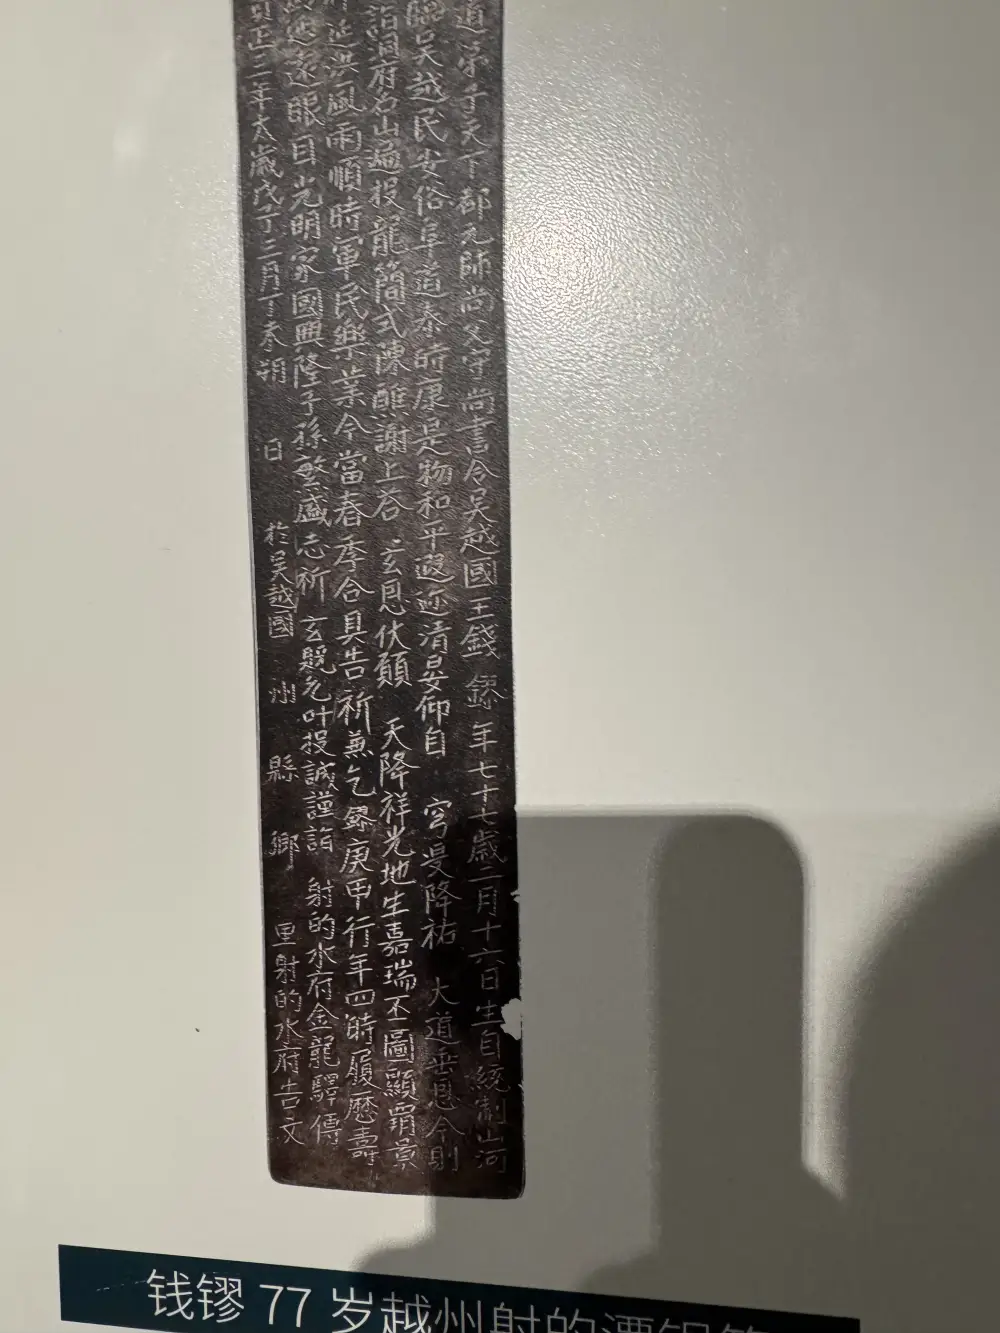 道弟子天下都元帥尚父守尚書令吳越國王錢鏐年七十七歲二月十六日生自統制山河
臨吳越民安俗阜道泰時康是物和平遐邇清晏仰自 穹旻降祐 大道垂恩今則
詣洞府名山遍投龍簡式陳醮謝上荅 玄恩伏願 天降祥光地生嘉瑞丕圖顯霸景
祚延洪風雨順時軍民樂業今當春季合具告祈兼乞鏐庚甲行年四時履歷壽
延遠眼目光明家國興隆子孫繁盛志祈 玄貺允叶投誠謹詣 射的水府金龍驛傳
正三年太歲戊子三月丁未朔 日 於吳越國 州 縣 鄉 里射的水府告文
钱镠 77 岁越州射的潭银简